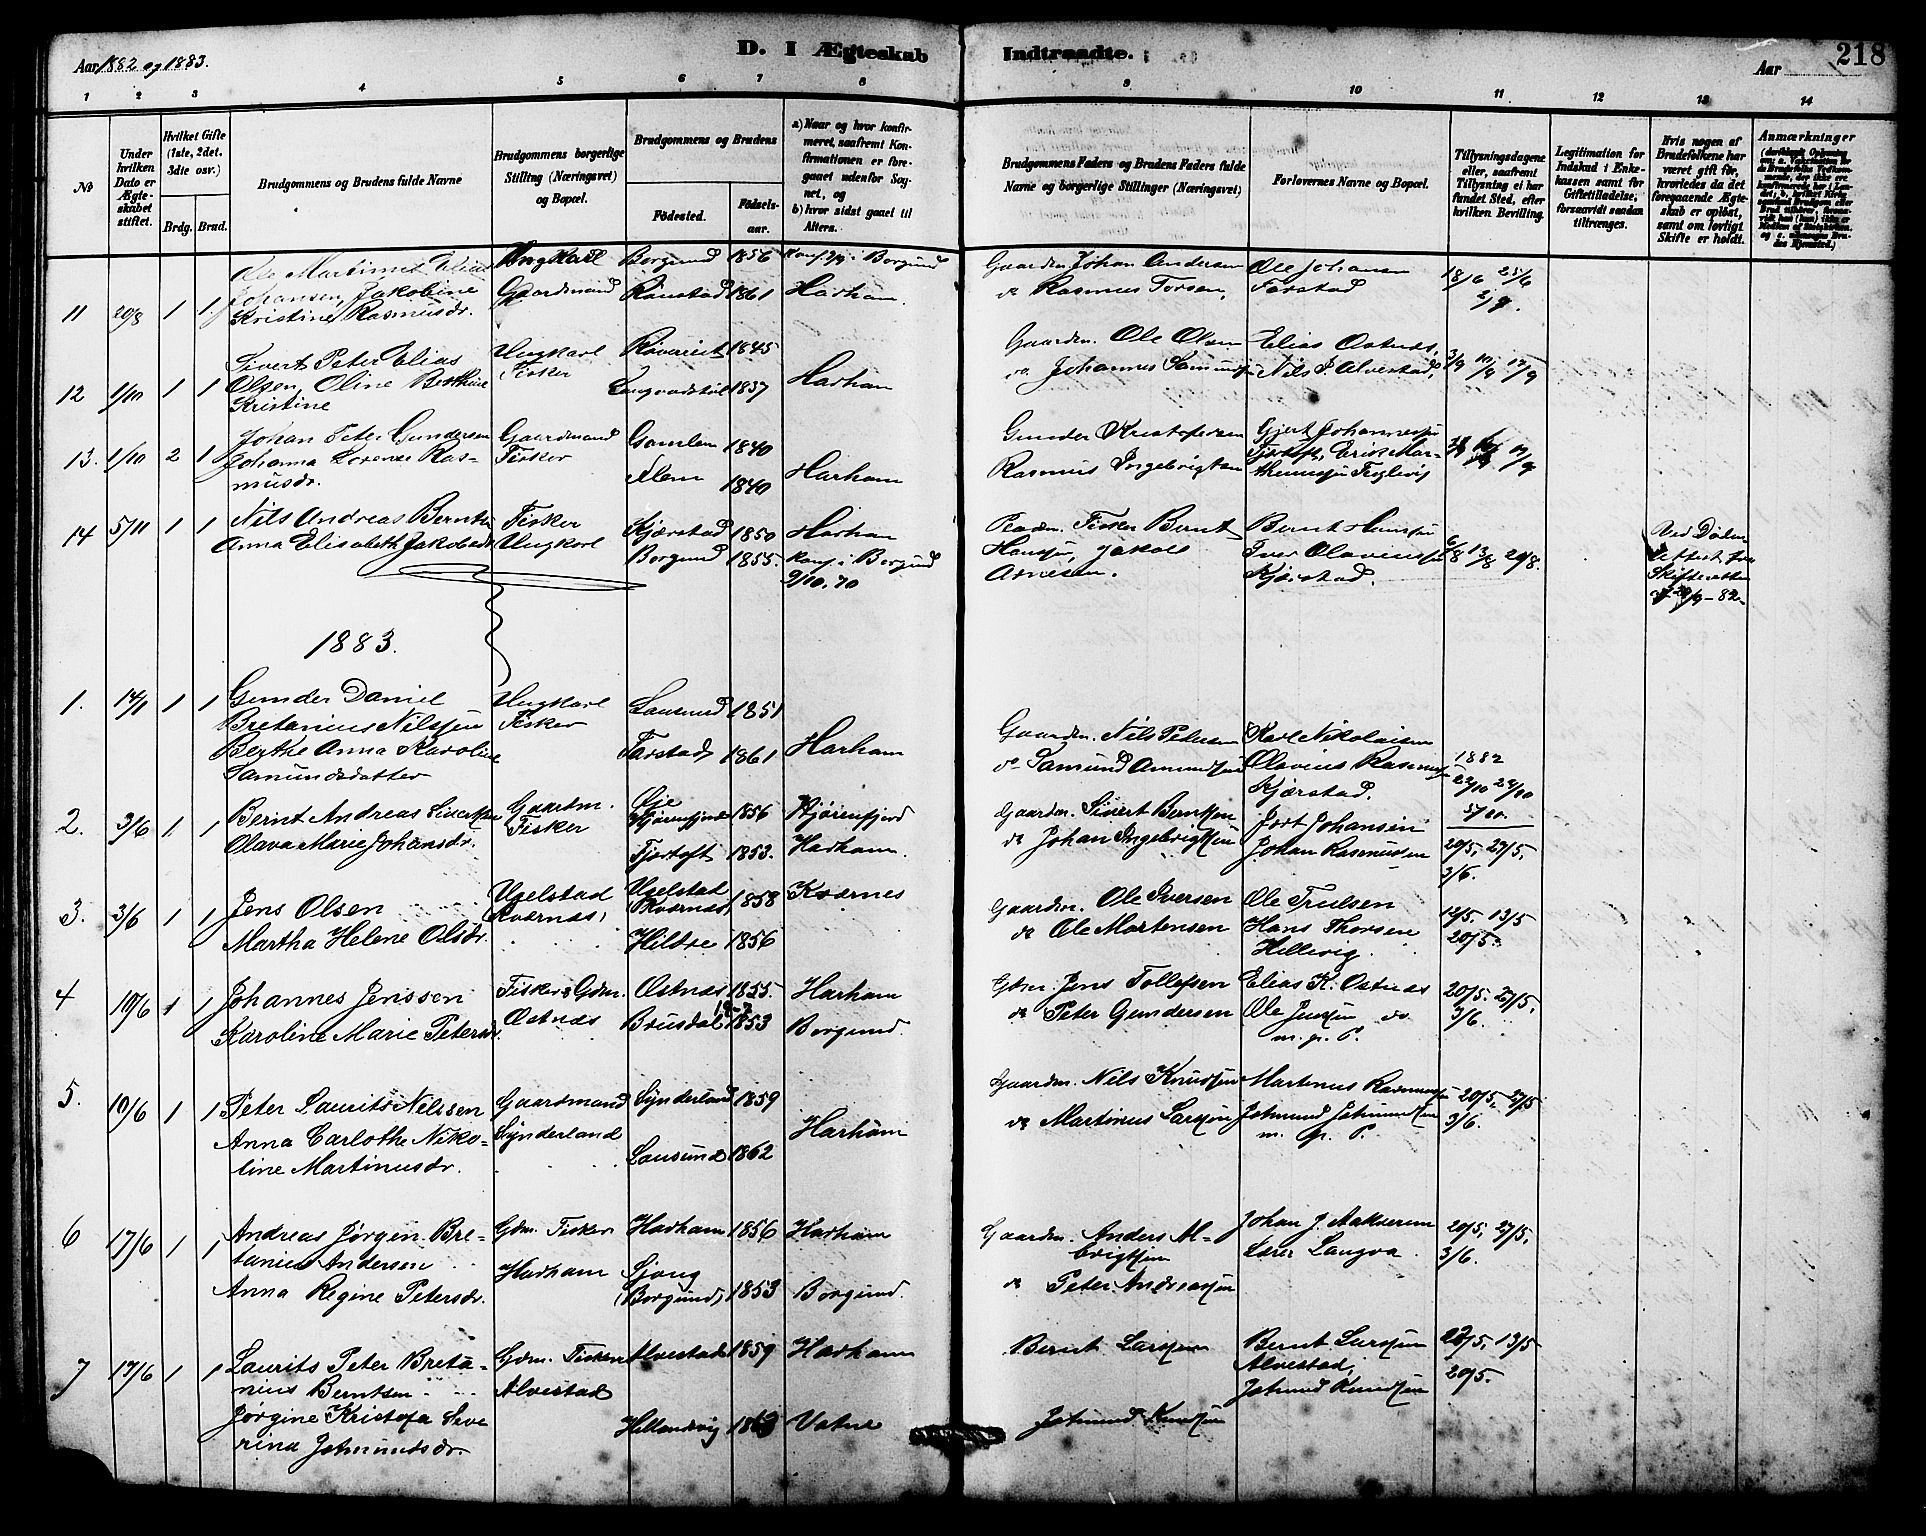 Aar 1882 og 1883.
D. I Ægteskab Indtraadte.
Aar
218
1 2 3 4 5 6 7 8 9 10 11 12 13 14
No
Under hvilken Dato er Ægteskabet stiftet.
Hvilket Gifte (1ste, 2det, 3dte osv.)
Brdg. Brud.
Brudgommens og Brudens fulde Navne
Brudgommens borgerlige Stilling (Næringsvei) og Bopæl.
Brudgommens og Brudens
Födested. Födselsaar.
a) Naar og hvor konfirmeret, saafremt Konfirmationen er foregaaet udenfor Sognet, og
b) hvor sidst gaaet til Alters.
Brudgommens Faders og Brudens Faders fulde Navne og borgerlige Stillinger (Næringsvei)
Forlovernes Navne og Bopæl.
Tillysningsdagene eller, saafremt Tillysning ei har fundet Sted, efter hvilken Bevilling.
Legitimation for Indskud i Enkekassen samt for Giftetilladelse, forsaavidt saadan tiltrænges.
Hvis nogen af Brudefolkene har været gift før, hvorledes da det foregaaende Ægteskab er opløst, samt om lovligt Skifte er holdt.
Anmærkninger
Ole Martinus Elias Ungkarl Borgund 1856 i Borgund Gaardm. Johan Andersen Ole Johansen 18/6 25/6
11 20/8 1 1 Johansen, Jakobine Gaardmand Rønstad 1861 Harham. do Rasmus Torsen, Farstad 2/7.
Kristine Rasmusdr.
Sivert Peter Elias Ungkarl 1845 Gaardm. Ole Olsen Elias Ostnes,
12 1/10 1 1 Olsen, Oline Berthine Fisker 1857 Harham do. Johannes Nils J. Alvestad, 3/9 10/9 17/9
Kristine
Johan Peter Gundersen Gaardmand Gamlem 1840 Gunder Kristofersen Gjert Johannessen
13. 1/10 2 1 Johanna Lorense Ras- Fisker Alem 1840 Harham Rasmus Ingebrigtsen Fjørtoft, Erik Mar- 17/9
musdr. thinussen
14 5/11 1 1 Nils Andreas Berntsen Fisker Kjærstad 1850 Harham Fisker Bernt Bernt Hanssen
Anna Elisabeth Jakobsdr. Ungkarl Borgund 1855. konf. i Borgund Hanssen, Jakob Iver Olavenssen 6/8 13/8 20/8.
9/10.70 Arnesen. Kjærstad.
Ved Døden
Attest fra
Skifteretten
1883.
1. 14/1 1 1 Gunder Daniel Ungkarl Lausund 1851
Bretanius Nilssen Fisker Gaardm. Nils Petersen Karl Nikolaisen
Berthe Anna Karoline Farstad, 1861 Harham do Samund Amundsen Olavius Rasmussen 1882
Samundsdatter Kjærstad. 22/10 29/10
2. 3/6 1 1 Bernt Andreas Sivertsen Gaardm. Øie Hjørenfjord 1856 Hjørenfjord Gaardm. Sivert Berntsen Jort Johansen
Olava Marie Johansdr. Fisker Fjørtoft 1853. Harham. do Johan Ingebrigtsen Johan Rasmussen 20/5, 27/5,
3/6.
3. 3/6 1 1 Jens Olsen Ugelstad Ugelstad (Kvernes) 1858 Kvernes Gaardm. Ole Iversen Ole Trulsen 12/5. 13/5
Martha Helene Olsdr. (Kvernes) Hildre 1856 do Ole Mortensen Hans Thorsen 20/5.
Hellevig.
4 10/6 1 1 Johannes Jenssen Fisker & Gdm. Ostnes 1855. Harham Gdm. Jens Tollefsen Elias K. Ostnes 20/5. 27/5,
Karoline Marie Petersdr. Ostnes Brusdal 1853 Borgund. do Peter Gundersen Ole Jenssen do 3/6.
m. p. P.
5. 10/6 1 1 Peter Laurits Nilssen Gaardmand Synderland 1859 Gaardm. Nils Knudsen Martinus Rasmussen 20/5. 27/5
Anna Carlothe Niko- Synderland Harham do Martinus Larssen Jetmund Jetmundsen 3/6.
line Martinusdr. Lausund 1862 m. p. P.
6 17/6 1 1 Andreas Jørgen Bre- Gdm. Fisker Harham 1856 Harham Gaardm. Anders Al- Johan J. Aakerem 20/5, 27/5,
tanius Andersen brigtsen Lærer Langva. 3/6.
Anna Regine Petersdr. Harham Sjong (Borgund) 1853 Borgund. do Peter Andreassen
7 17/6 1 1 Laurits Peter Breta- Gdm. Fisker Alvestad 1859 Harham Bernt Larssen Bernt Larssen 13/5
nius Berntsen Alvestad Alvestad, 20/5.
Jørgine Kristofa Seve- Hellandsvig 1863 Vatne Jetmund Knudsen Jetmund Knudsen
rina Jetmundsdr.